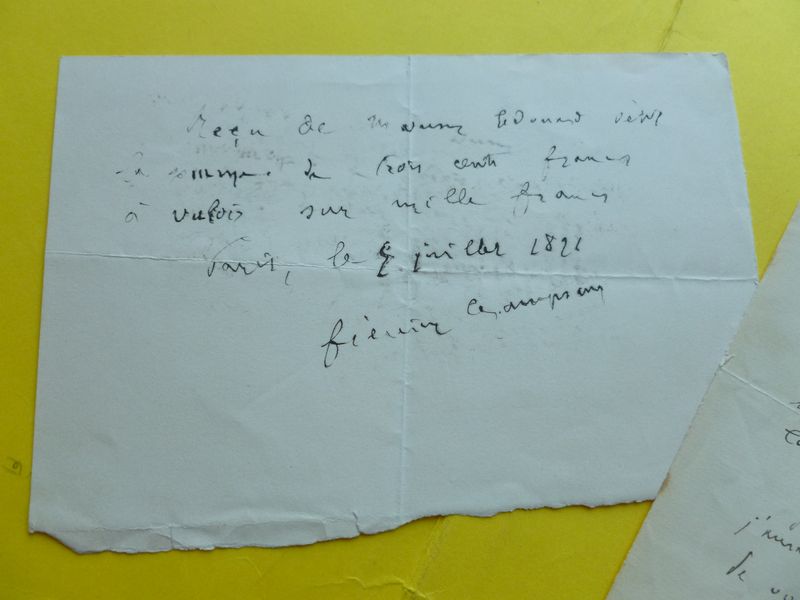 Reçu de Maurice Edouard
la somme de trois cents francs
à valoir sur mille francs
Paris, le juillet 1891
Champsaur
de